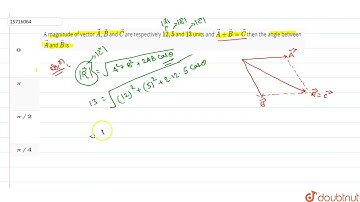 15716064
|A⃗| |B⃗| |C⃗|
A magnitude of vector A⃗, B⃗ and C⃗ are respectively 12, 5 and 13 units and A⃗ + B⃗ = C⃗ then the angle between
A⃗ and B⃗ is
|R⃗| = √A² + B² + 2AB cosθ
13 = √(12)² + (5)² + 2·12·5 cosθ
A⃗
B⃗
R⃗ = C⃗
0
π
π / 2
π / 4
doubtnut